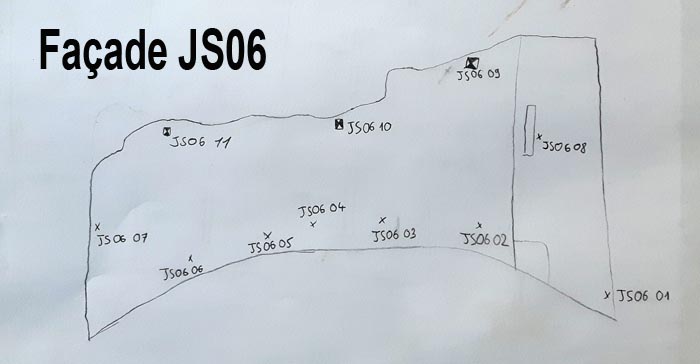 Façade JS06
JS06 09
JS06 10
JS06 11
JS06 08
JS06 04
JS06 07
JS06 05
JS06 03
JS06 02
JS06 06
JS06 01